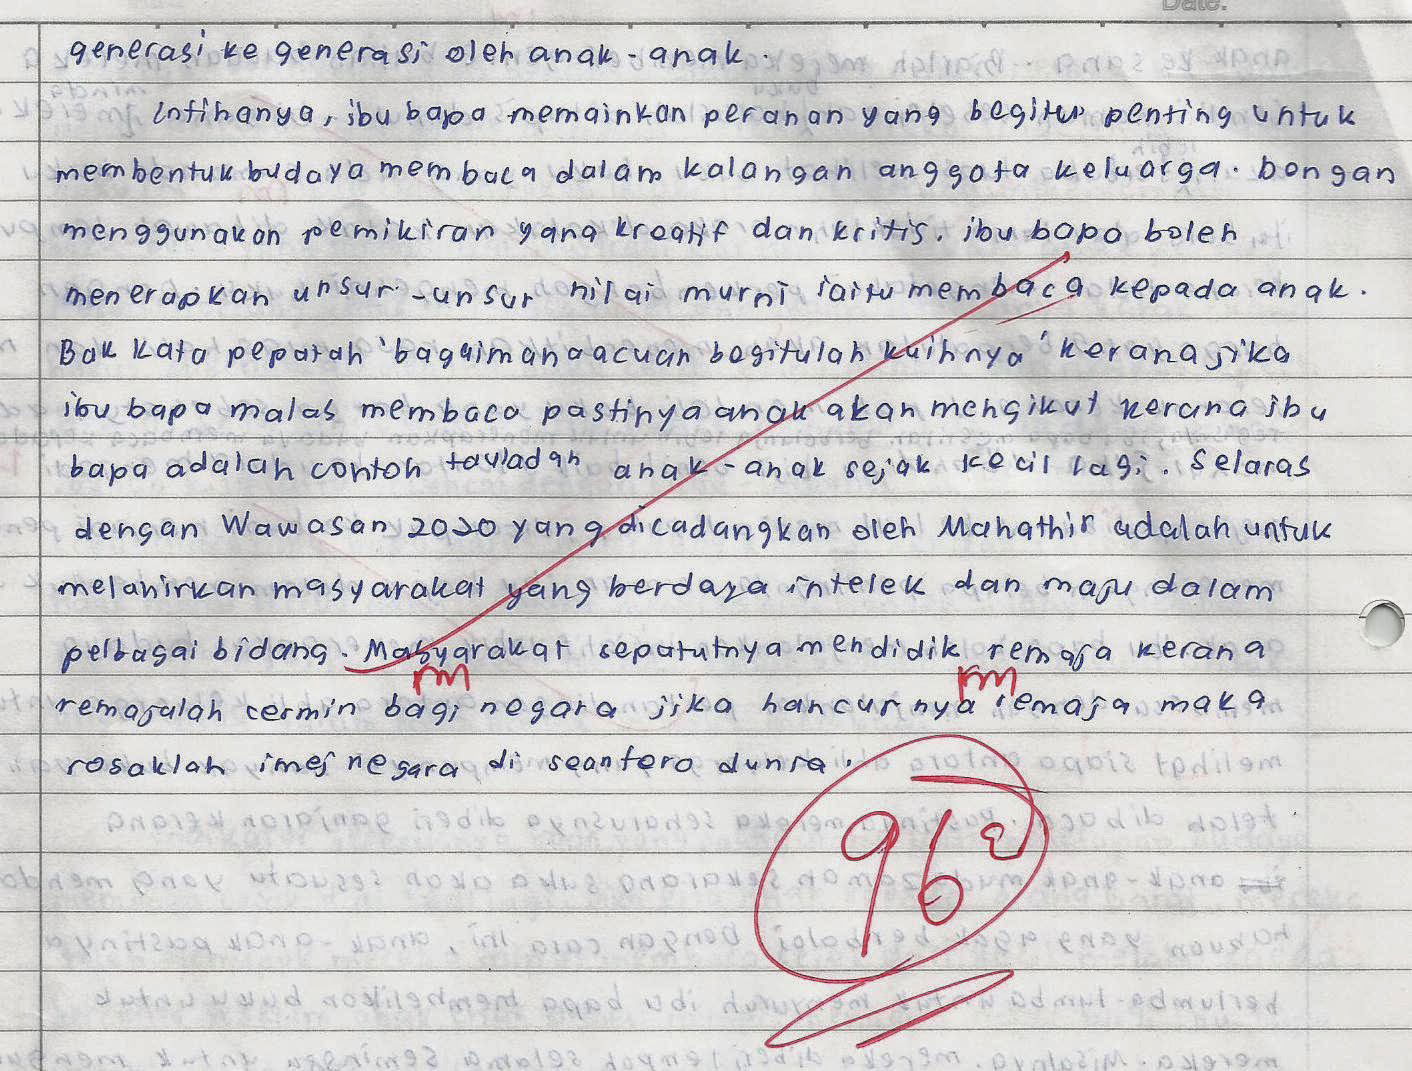 Date:
generasi ke generasi oleh anak-anak.
Intihanya, ibu bapa memainkan peranan yang begitu penting untuk
membentuk budaya membaca dalam kalangan anggota keluarga. Dengan
menggunakan pemikiran yang kreatif dan kritis, ibu bapa boleh
menerapkan unsur-unsur nilai murni iaitu membaca kepada anak.
Bak kata pepatah 'bagaimana acuan begitulah kuihnya' kerana jika
ibu bapa malas membaca pastinya anak akan mengikut kerana ibu
bapa adalah contoh tauladan anak-anak sejak kecil lagi. Selaras
dengan Wawasan 2020 yang dicadangkan oleh Mahathir adalah untuk
melahirkan masyarakat yang berdaya intelek dan maju dalam
pelbagai bidang. Masyarakat sepatutnya mendidik remaja kerana
rm rm
remajalah cermin bagi negara jika hancurnya remaja maka
rosaklah imej negara di seantero dunia.
96